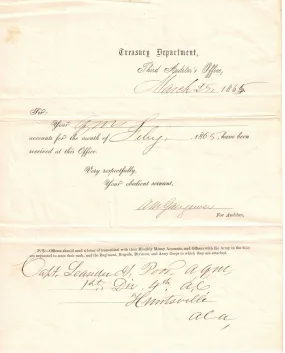 Treasury Department,
Third Auditor's Office,
March 25, 1865
Sir:
Your
accounts for the month of Feby. 1865, have been
received at this Office.
Very respectfully,
Your obedient servant,
For Auditor.
Officers should send a letter of transmittal with their Monthly Money Accounts, and Officers with the Army in the field
are requested to state their rank, and the Regiment, Brigade, Division, and Army Corps to which they are attached.
Capt. Leander H. Poor, AQM
1st Div. 4th A.C.
Huntsville
Ala,